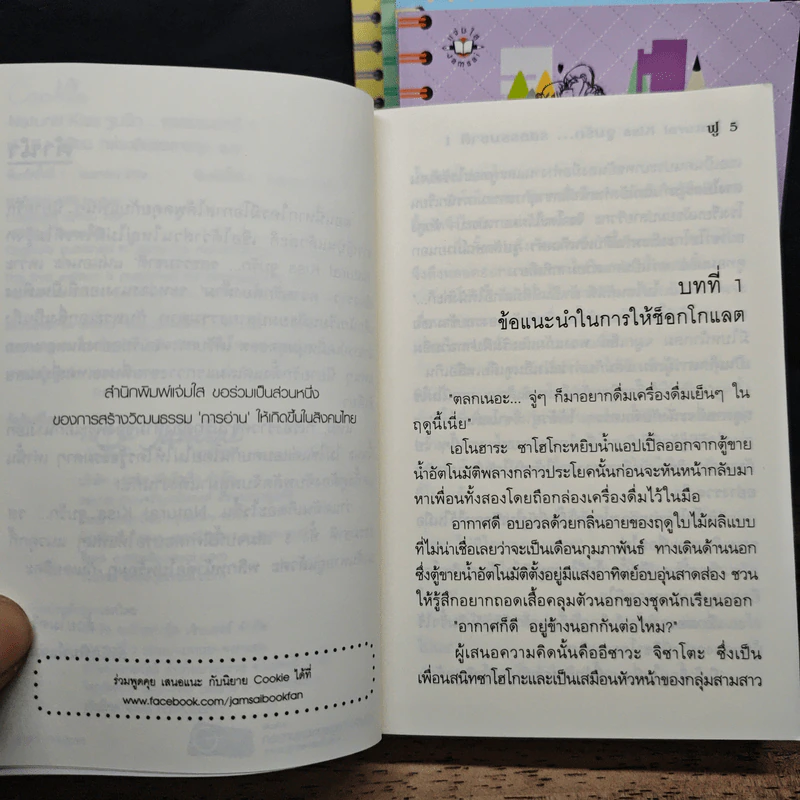 สำนักพิมพ์แจ่มใส ขอร่วมเป็นส่วนหนึ่ง
ของการสร้างวัฒนธรรม 'การอ่าน' ให้เกิดขึ้นในสังคมไทย
ร่วมพูดคุย เสนอแนะ กับนิยาย Cookie ได้ที่
www.facebook.com/jamsaibookfan
ฟู 5
บทที่ 1
ข้อแนะนำในการให้ช็อกโกแลต
"ตลกเนอะ... จู่ๆ ก็มาอยากดื่มเครื่องดื่มเย็นๆ ใน
ฤดูนี้เนี่ย"
เอโนฮาระ ซาโฮโกะหยิบน้ำแอปเปิ้ลออกจากตู้ขาย
น้ำอัตโนมัติพลางกล่าวประโยคนั้นก่อนจะหันหน้ากลับมา
หาเพื่อนทั้งสองโดยถือกล่องเครื่องดื่มไว้ในมือ
อากาศดี อบอวลด้วยกลิ่นอายของฤดูใบไม้ผลิแบบ
ที่ไม่น่าเชื่อเลยว่าจะเป็นเดือนกุมภาพันธ์ ทางเดินด้านนอก
ซึ่งตู้ขายน้ำอัตโนมัติตั้งอยู่มีแสงอาทิตย์อบอุ่นสาดส่อง ชวน
ให้รู้สึกอยากถอดเสื้อคลุมตัวนอกของชุดนักเรียนออก
"อากาศก็ดี อยู่ข้างนอกกันต่อไหม?"
ผู้เสนอความคิดนั้นคืออีซาวะ จิซาโตะ ซึ่งเป็น
เพื่อนสนิทซาโฮโกะและเป็นเสมือนหัวหน้าของกลุ่มสามสาว